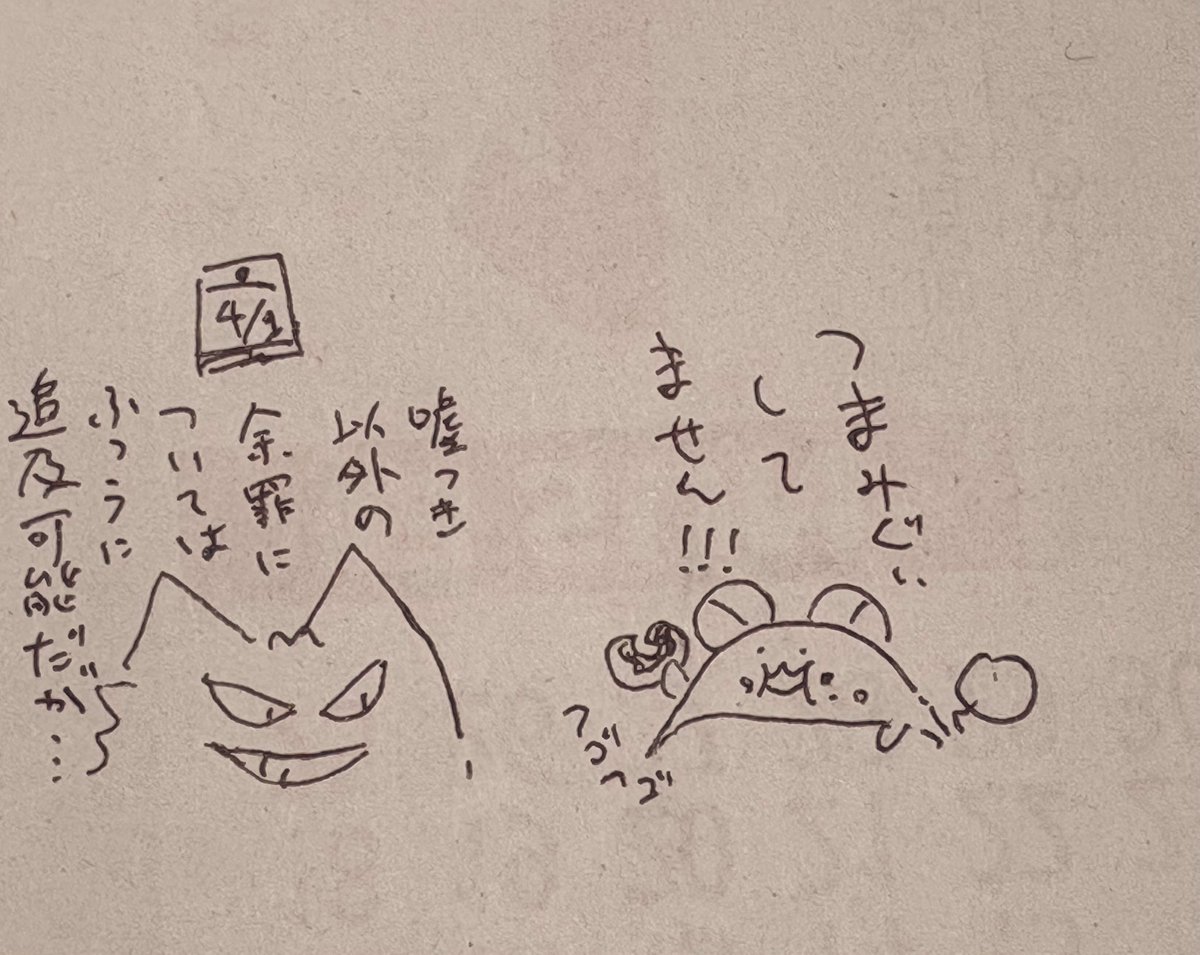 つまみぐい
して
ません!!!
ヘゴ
ヘゴ
4/1
嘘つき
以外の
余罪に
ついては
ふつうに
追及可能だが…